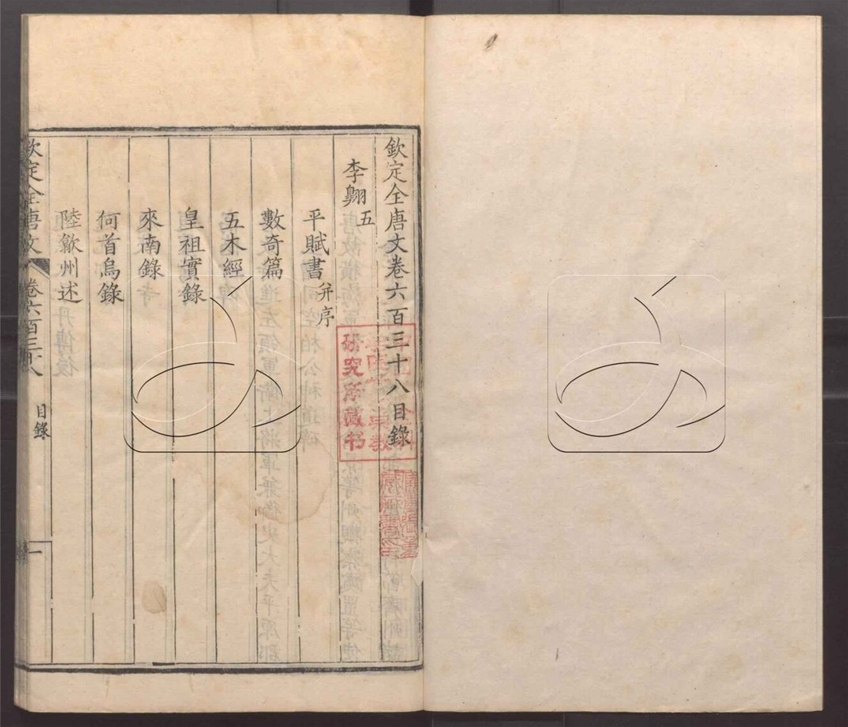 欽定全唐文卷六百三十八目錄
李翶五
平賦書并序
數奇篇
五木經
皇祖實錄
來南錄
何首烏錄
陸歙州述
欽定全唐文 卷六百三十八 目錄 一